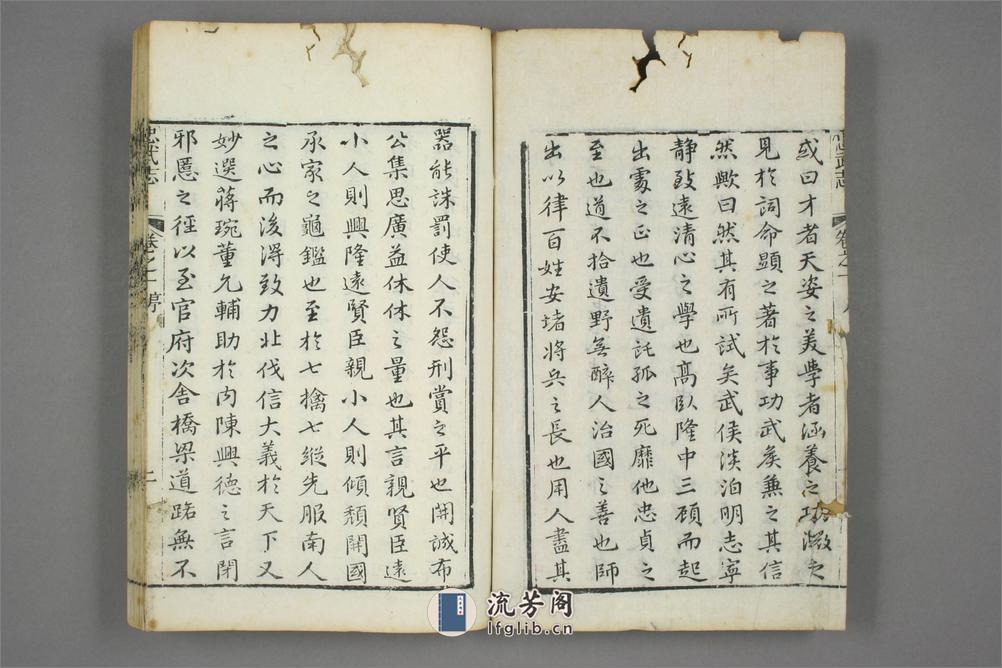 或曰才者天姿之美學者涵養之功微之
見於詞命顯之著於事功武矦兼之其信
然歟曰然其有所試矣武侯淡泊明志寧
靜致遠清心之學也髙臥隆中三顧而起
出處之正也受遺託孤之死靡他忠貞之
至也道不拾遺野無醉人治國之善也師
出以律百姓安堵將兵之長也用人盡其
忠武志
卷之
器能誅罰使人不怨刑賞之平也開誠布
公集思廣益休休之量也其言親賢臣遠
小人則興隆遠賢臣親小人則傾頹開國
承家之龜鑑也至於七擒七縱先服南人
之心而後得致力北伐信大義於天下又
妙選蔣琬董允輔助於內陳興德之言閉
邪慝之徑以至官府次舍橋梁道路無不
忠武志
卷之
序
流芳阁
lfglib.cn